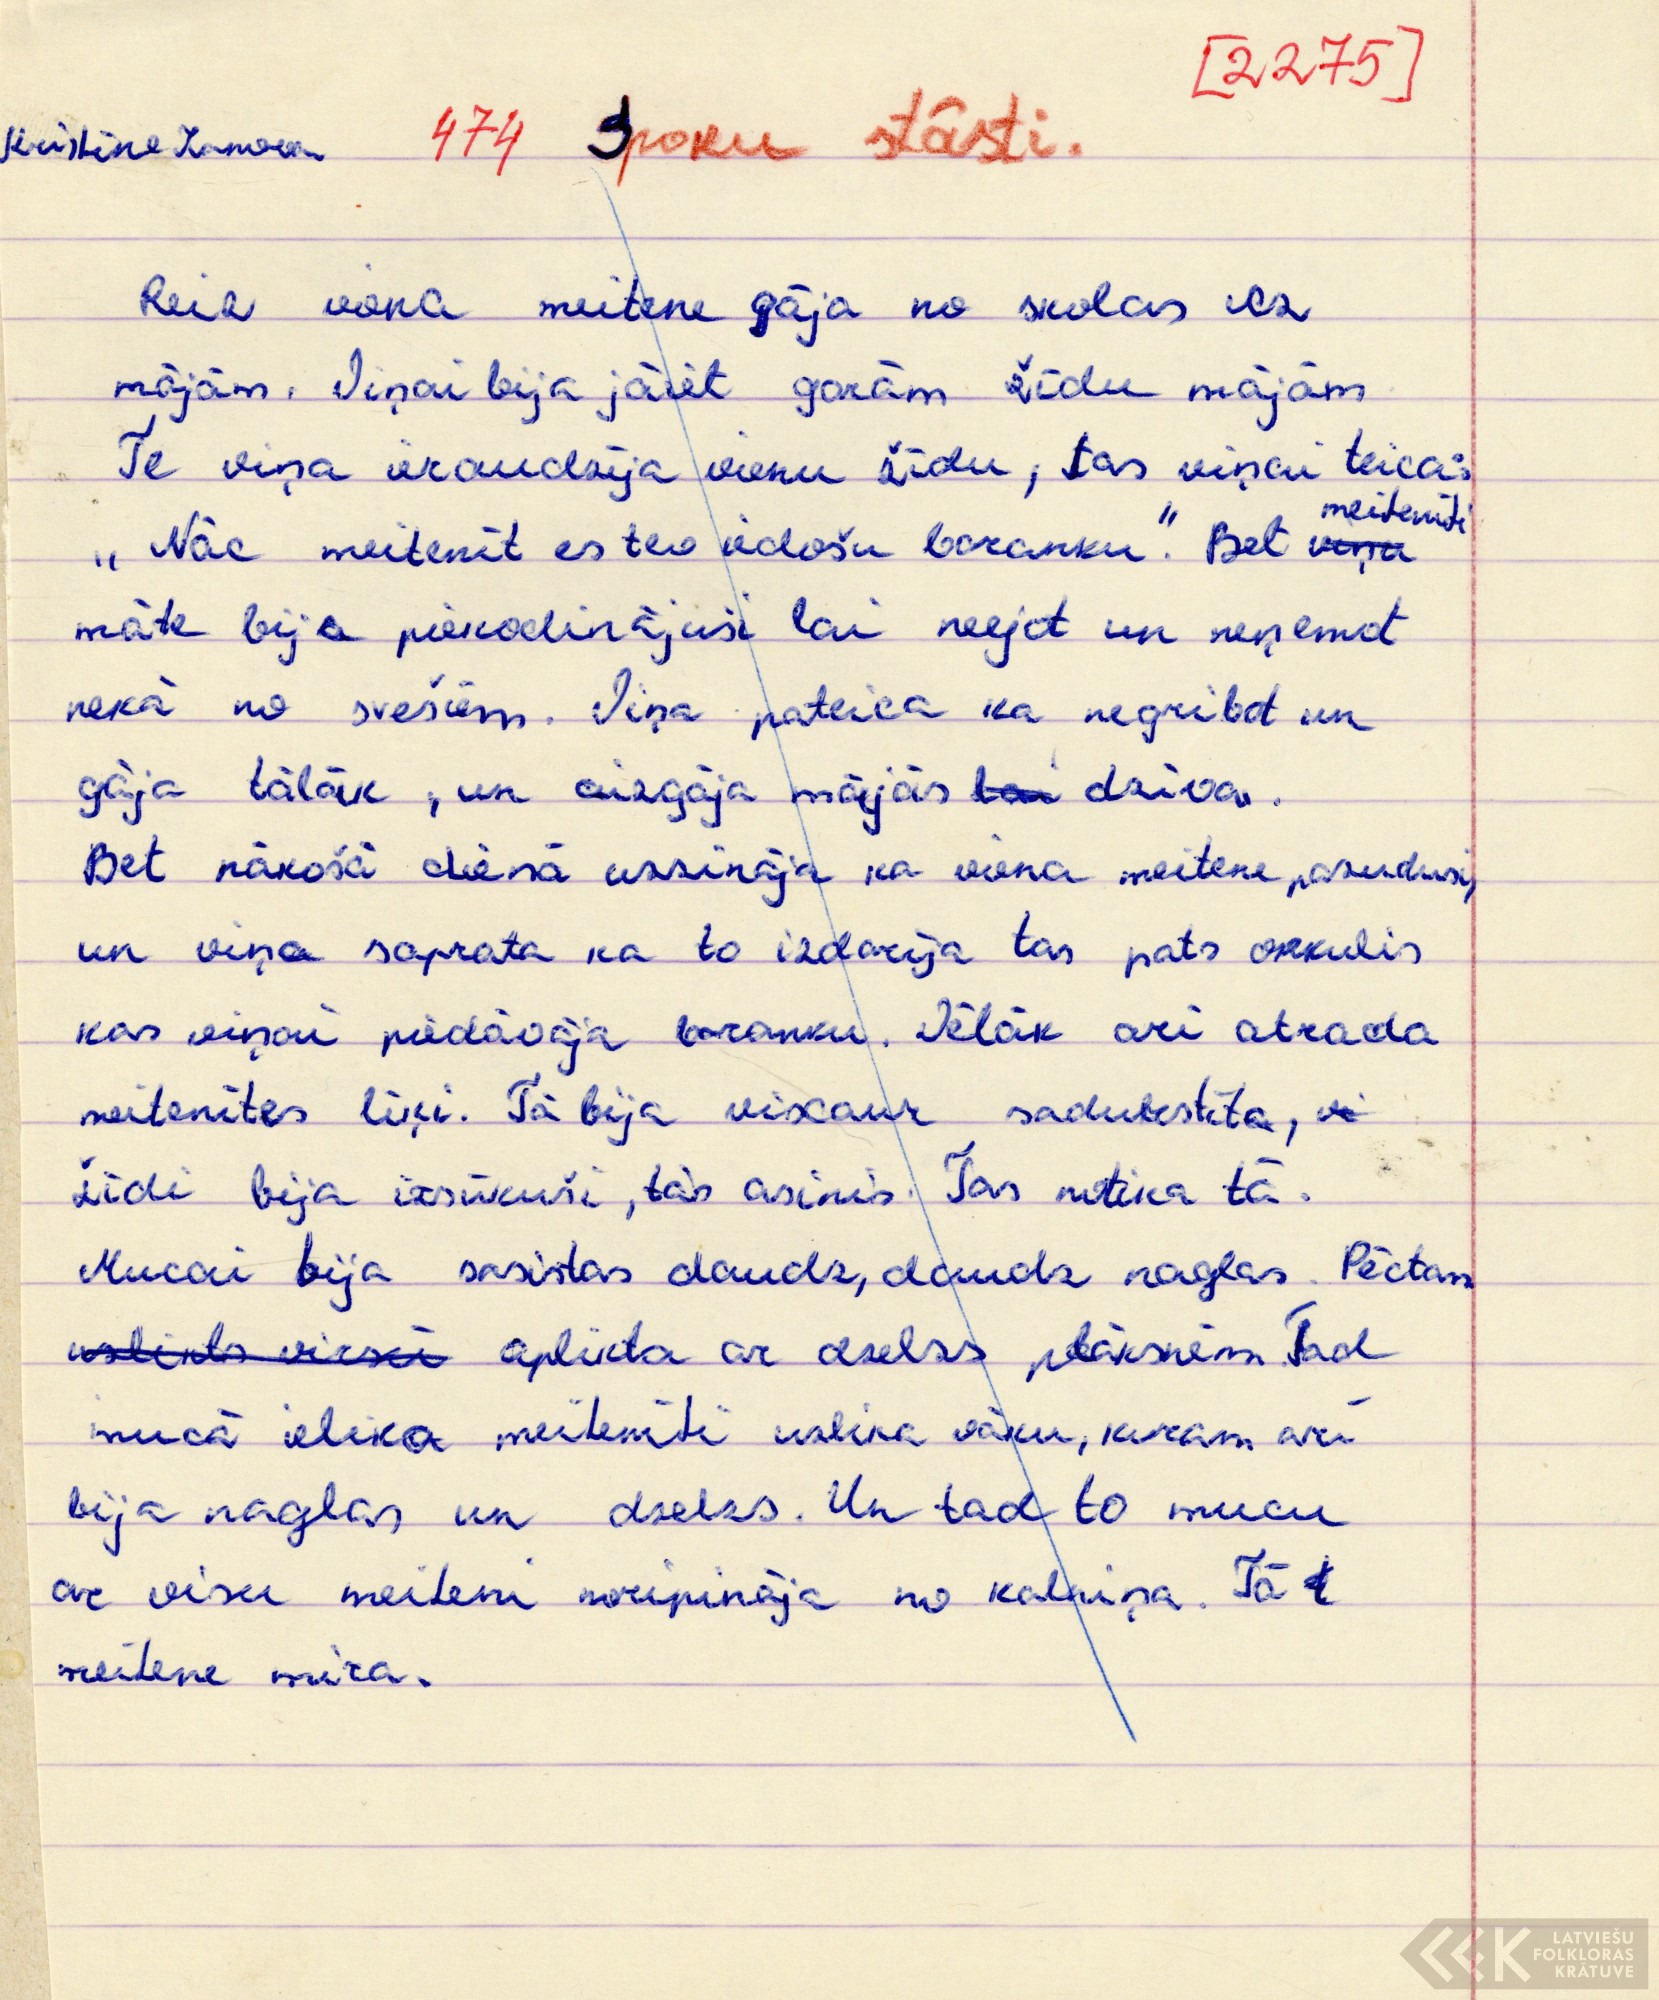 [2275]
Kristīne 474 Spoku stāsti.
Reiz viena meitene gāja no skolas uz
mājām. Viņai bija jāiet garām žīdu mājām
Te viņa ieraudzīja vienu žīdu, tas viņai teica:
meitenīti
„Nāc meitenīt es tev iedošu baranku". Bet viņu
māte bija piekodinājusi lai neejot un neņemot
nekā no svešiem. Viņa pateica ka negribot un
gāja tālāk, un aizgāja mājās lai dzīva.
Bet nākošā dienā uzzināja ka viena meitene pazudusi,
un viņa saprata ka to izdarīja tas pats onkulis
kas viņai piedāvāja baranku. Vēlāk arī atrada
meitenītes līķi. Tā bija viscaur sadurstīta, vi
žīdi bija izsūkuši, tās asinis. Tas notika tā.
Mucai bija sasistas daudz, daudz naglas. Pēctam
uzlikts virsū aplikta ar dzelzs plāksnēm. Tad
mucā ielika meitenīti uzlika vāku, kuram arī
bija naglas un dzelzs. Un tad to mucu
ar visu meiteni noripināja no kalniņa. Tā t
meitene mira.
LATVIEŠU
FOLKLORAS
KRĀTUVE